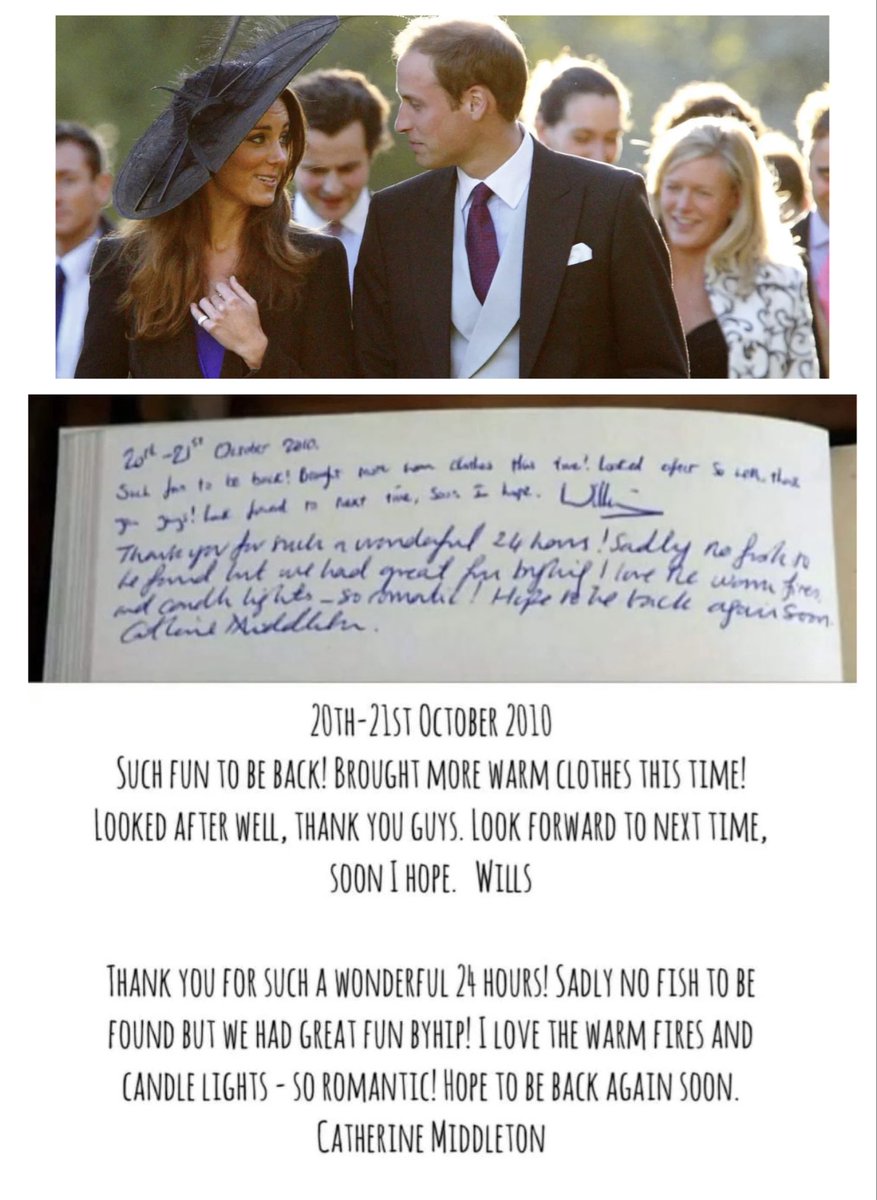 20th-21st October 2010.
Such fun to be back! Brought more warm clothes this time! Looked after so well, thank
you guys! Look forward to next time, soon I hope. Wills
Thank you for such a wonderful 24 hours! Sadly no fish to
be found but we had great fun I love the warm fires
and candle lights - so romantic! Hope to be back again soon.
Catherine Middleton.
20TH-21ST OCTOBER 2010
SUCH FUN TO BE BACK! BROUGHT MORE WARM CLOTHES THIS TIME!
LOOKED AFTER WELL, THANK YOU GUYS. LOOK FORWARD TO NEXT TIME,
SOON I HOPE. WILLS
THANK YOU FOR SUCH A WONDERFUL 24 HOURS! SADLY NO FISH TO BE
FOUND BUT WE HAD GREAT FUN BYHIP! I LOVE THE WARM FIRES AND
CANDLE LIGHTS - SO ROMANTIC! HOPE TO BE BACK AGAIN SOON.
CATHERINE MIDDLETON